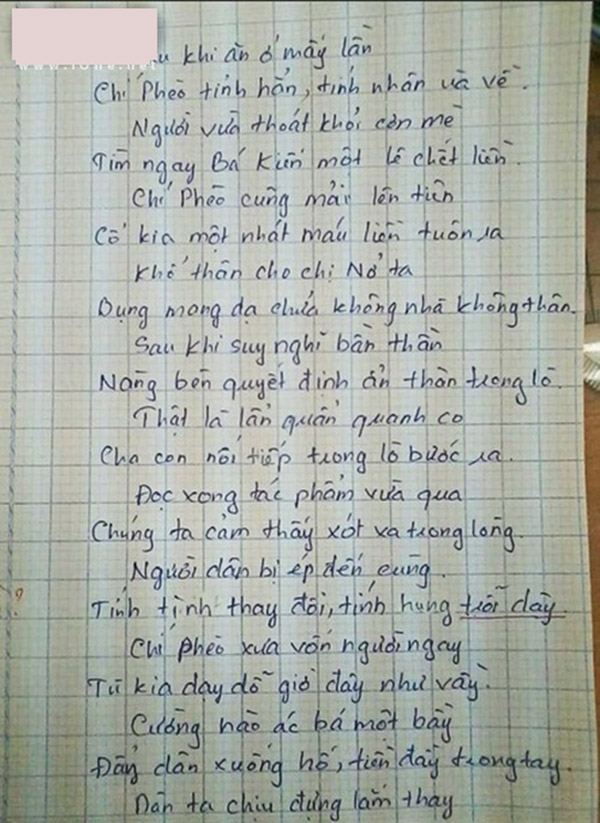 khi ăn ở mấy lần
Chí Phèo tỉnh hẳn, tính nhân ùa về.
Người vừa thoát khỏi cơn mê
Tìm ngay Bá Kiến một lê chết liền.
Chí Phèo cũng mải lên tiên
Cổ kia một nhát máu liền tuôn ra
Khổ thân cho chị Nở ta
Bụng mang dạ chửa không nhà không thân.
Sau khi suy nghĩ bần thần
Nàng bèn quyết định ẩn thân trong lò.
Thật là lẩn quẩn quanh co
Cha con nối tiếp trong lò bước ra.
Đọc xong tác phẩm vừa qua
Chúng ta cảm thấy xót xa trong lòng.
Người dân bị ép đến cùng.
?
Tính tình thay đổi, tính hung trỗi dậy.
Chí Phèo xưa vốn người ngay
Tù kia dạy dỗ giờ đây như vầy.
Cường hào ác bá một bầy
Đẩy dân xuống hố, tiền đầy trong tay.
Dân ta chịu đựng lắm thay